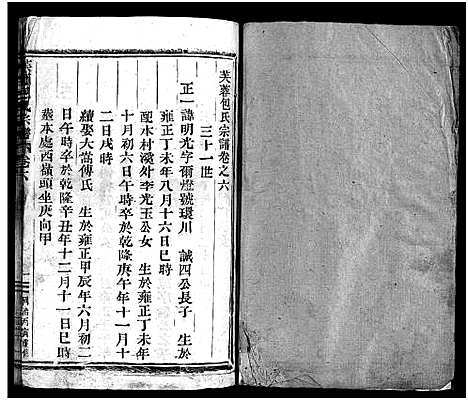 芙蓉包氏宗譜卷之六
三十一世
正一諱明光字爾燈號環川 誠四公長子 生於
雍正丁未年八月十六日巳時
配本村溪外李光玉公女 生於雍正丁未年
十月初六日午時卒於乾隆庚午年十一月十
二日戌時
續娶大嵩傅氏 生於雍正甲辰年六月初二
日午時卒於乾隆辛丑年十二月十一日巳時
葬本處西嶺頭坐庚向甲